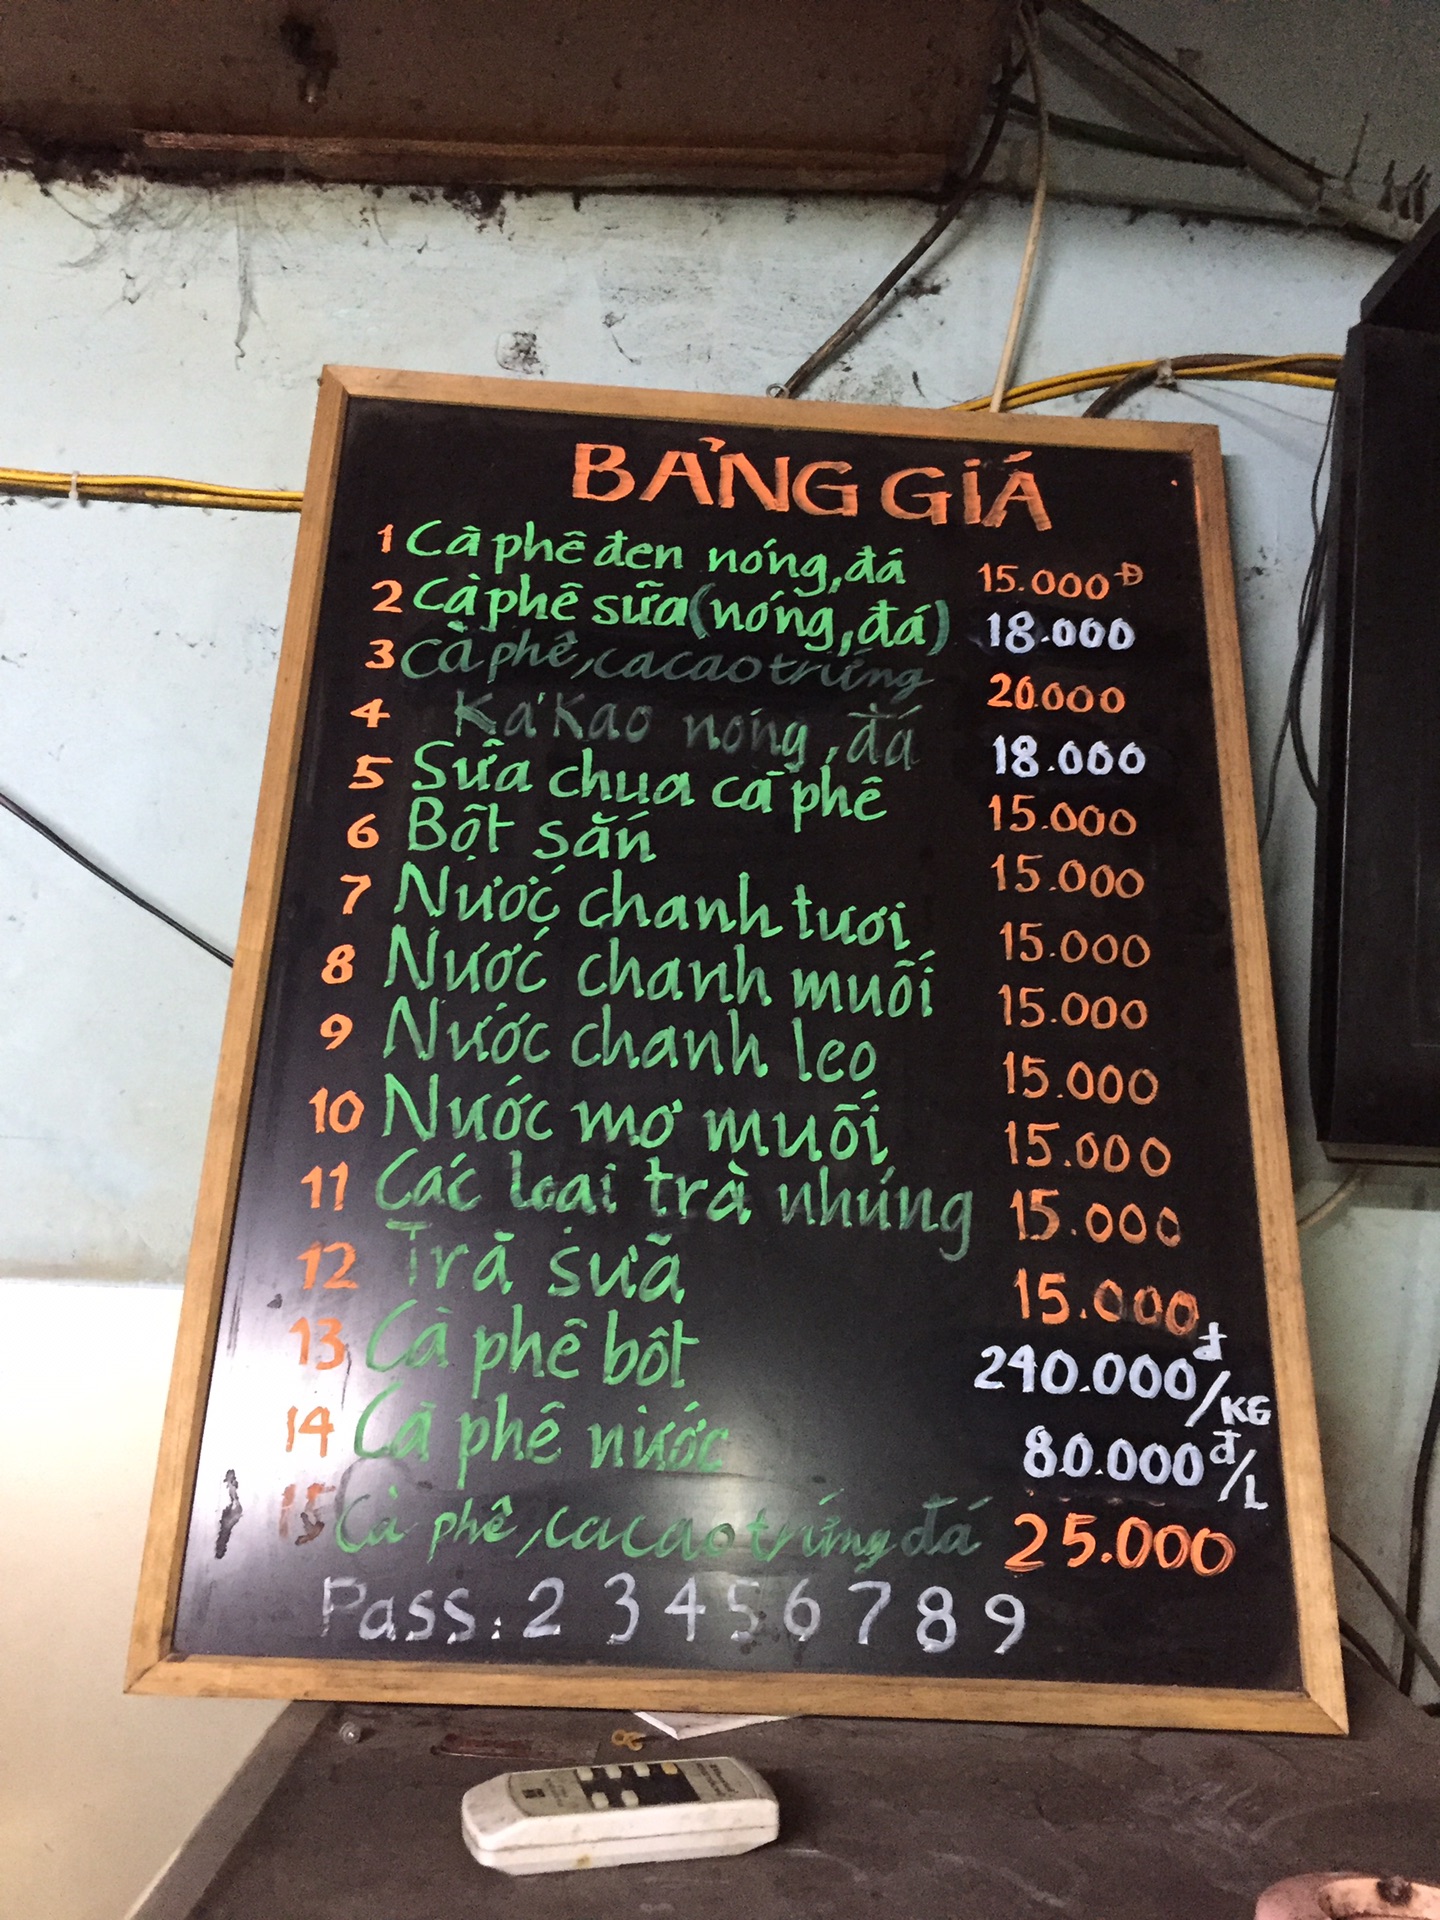 BẢNG GIÁ
1 Cà phê đen nóng, đá 15.000Đ
2 Cà phê sữa (nóng, đá) 18.000
3 Cà phê, cacao trứng 20.000
4 Ka'Kao nóng, đá 18.000
5 Sữa chua cà phê 15.000
6 Bột sắn 15.000
7 Nước chanh tươi 15.000
8 Nước chanh muối 15.000
9 Nước chanh leo 15.000
10 Nước mơ muối 15.000
11 Các loại trà nhúng 15.000
12 Trà sưã 15.000đ
13 Cà phê bột 240.000đ/KG
14 Cà phê nước 80.000đ/L
15 Cà phê, cacao trứng đá 25.000
Pass: 2 3 4 5 6 7 8 9